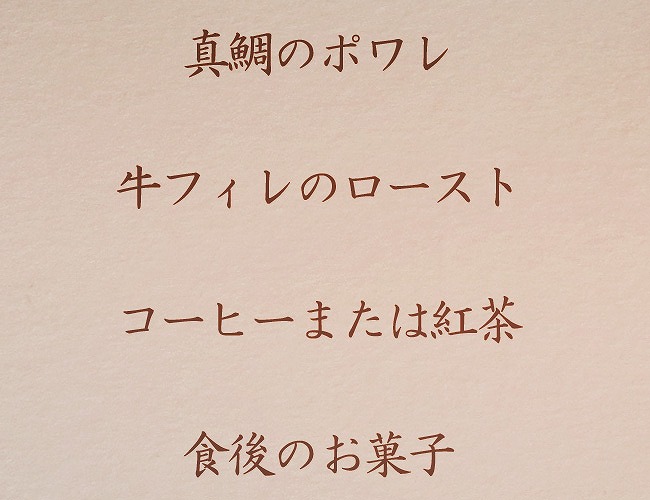 真鯛のポワレ
牛フィレのロースト
コーヒーまたは紅茶
食後のお菓子